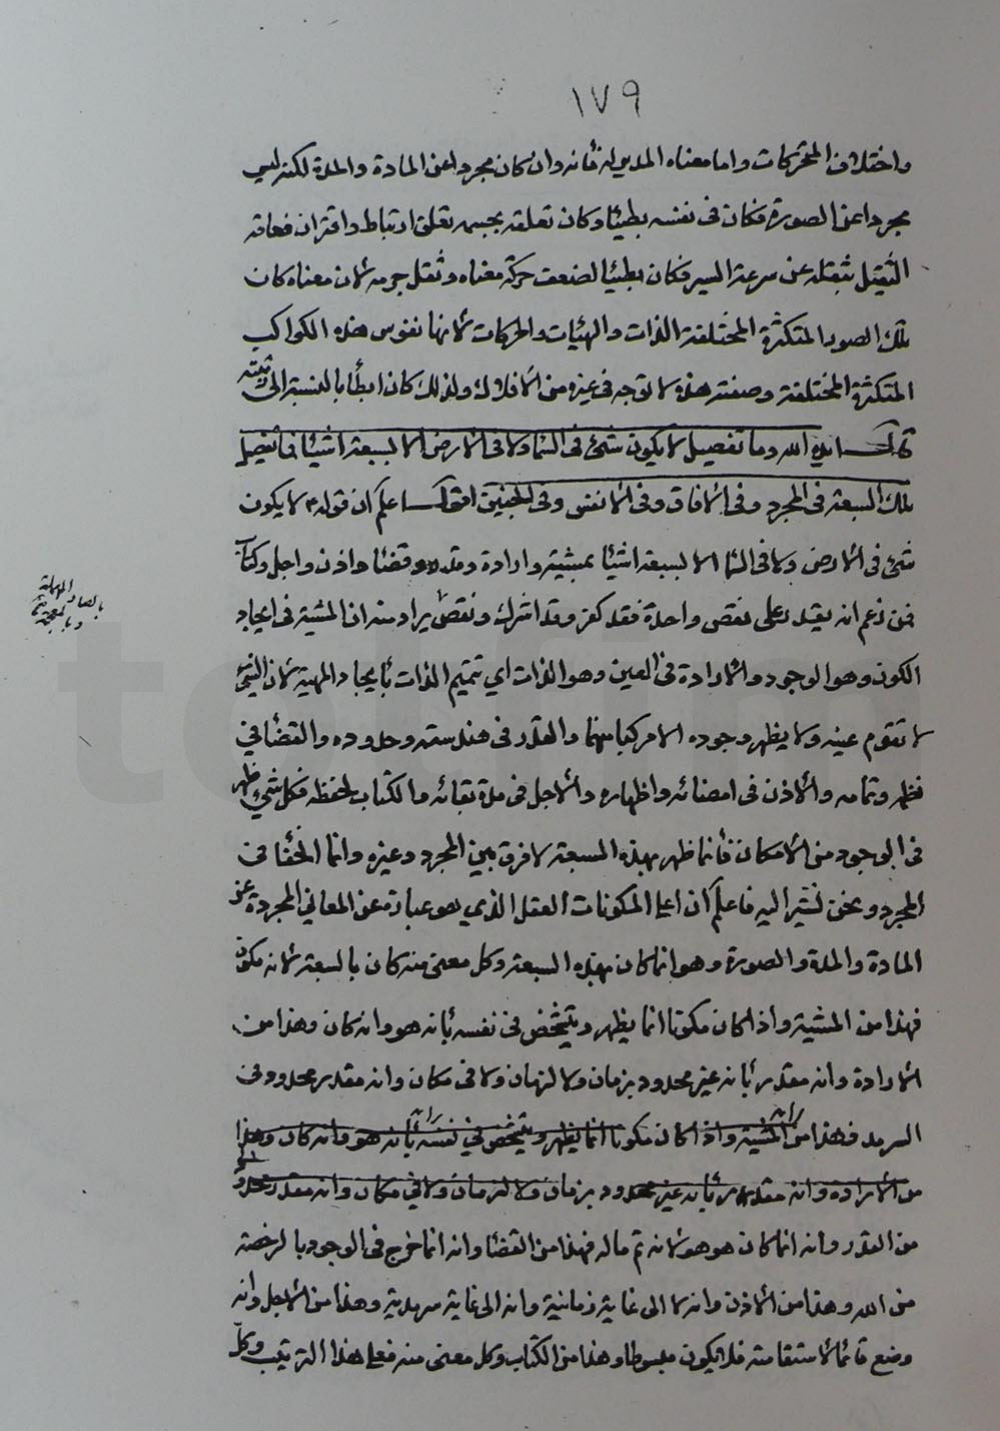 ١٧٩
واختلاف المتحركات واما معناه المدبر له فانه وان كان مجردا عن المادة والمدة لكنه ليس
مجردا عن الصورة فكان في نفسه بطيئا وكان تعلقه بجسمه تعلق ارتباط واقتران فعاقه
الثقيل بثقله عن سرعة السير فكان بطيئا لضعف حركة معناه وثقل جرمه لان معناه كان
تلك الصور المتكثرة المختلفة الذات والهيئات والحركات لانها نفوس هذه الكواكب
المتكثرة المختلفة وصفته هذه لا توجد في غيره من الافلاك ولذلك كان ابطأ بالنسبة الى
قال ايده الله وما تفصيل لا يكون شئ في السماء ولا في الارض الا بسبعة اشياء في تفصيل
تلك السبعة في المجرد وفي الافاق وفي الانفس وفي الجنين اقول اعلم ان قوله ع لا يكون
شئ في الارض ولا في السماء الا بسبعة اشياء بمشية وارادة وقدر وقضاء واذن واجل وكتاب
فمن زعم انه يقدر على نقص واحدة فقد كفر وقد اشرك ونقص يراد منه ان المشية في ايجاد
الكون وهو الوجود والارادة في العين وهو الذات اي تتميم الذات بايجاد المهية لان الشئ
لا تقوم عينه ولا يظهر وجوده الا مركبا منهما والقدر في هندسته وحدوده والقضاء في
ظهر وتمامه والاذن في امضائه واظهاره والاجل في مدة بقائه والكتاب لحفظه فكل شئ ظهر
في الوجود من الامكان فانما ظهر بهذه السبعة لا فرق بين المجرد وغيره وانما الخفاء في
المجرد ونحن نشير اليه فاعلم ان اعلا المكونات العقل الذي هو عبارة عن المعاني المجردة عن
المادة والمدة والصورة وهو انما كان بهذه السبعة وكل معنى منه كان بالسبعة لانه مكون
فهذا من المشية واذا كان مكونا انما يظهر ويتشخص في نفسه بانه هو وانه كان وهذا من
الارادة وانه مقدر بانه غير محدود بزمان ولا لزمان ولا في مكان وانه مقدر محدود في
السرمد فهذا من المشية واذا كان مكونا انما يظهر ويتشخص في نفسه بانه هو وانه كان وهذا
من الارادة وانه مقدر بانه غير محدود بزمان ولا لزمان ولا في مكان وانه مقدر محدود
من القدر وانه انما كان هو هو لانه تم ماله فهذا من القضاء وانه انما خرج في الوجود بالرخصة
من الله وهذا من الاذن وانه لا الى غاية زمانية وانه الى غاية سرمدية وهذا من الاجل وانه
وضع قائما لاستقامته فلا يكون مبسوطا وهذا من الكتاب وكل معنى منه فعلى هذا الترتيب وكل
بالصاد المهملة
وبالمعجمة